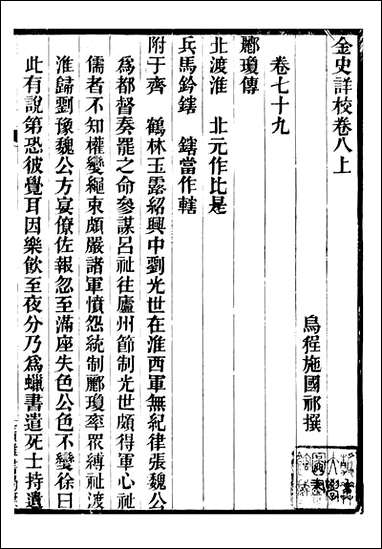 金史詳校卷八上
烏程施國祁撰
卷七十九
酈瓊傳
北渡淮　北元作比是
兵馬鈐鎋　鎋當作轄
附于齊　鶴林玉露紹興中劉光世在淮西軍無紀律張魏公
爲都督奏罷之命參謀呂祉往廬州節制光世頗得軍心祉
儒者不知權變繩束頗嚴諸軍憤怨統制酈瓊率眾縛祉渡
淮歸劉豫魏公方宴僚佐報忽至滿座失色公色不變徐曰
此有說第恐彼覺耳因樂飲至夜分乃爲蠟書遣死士持遺